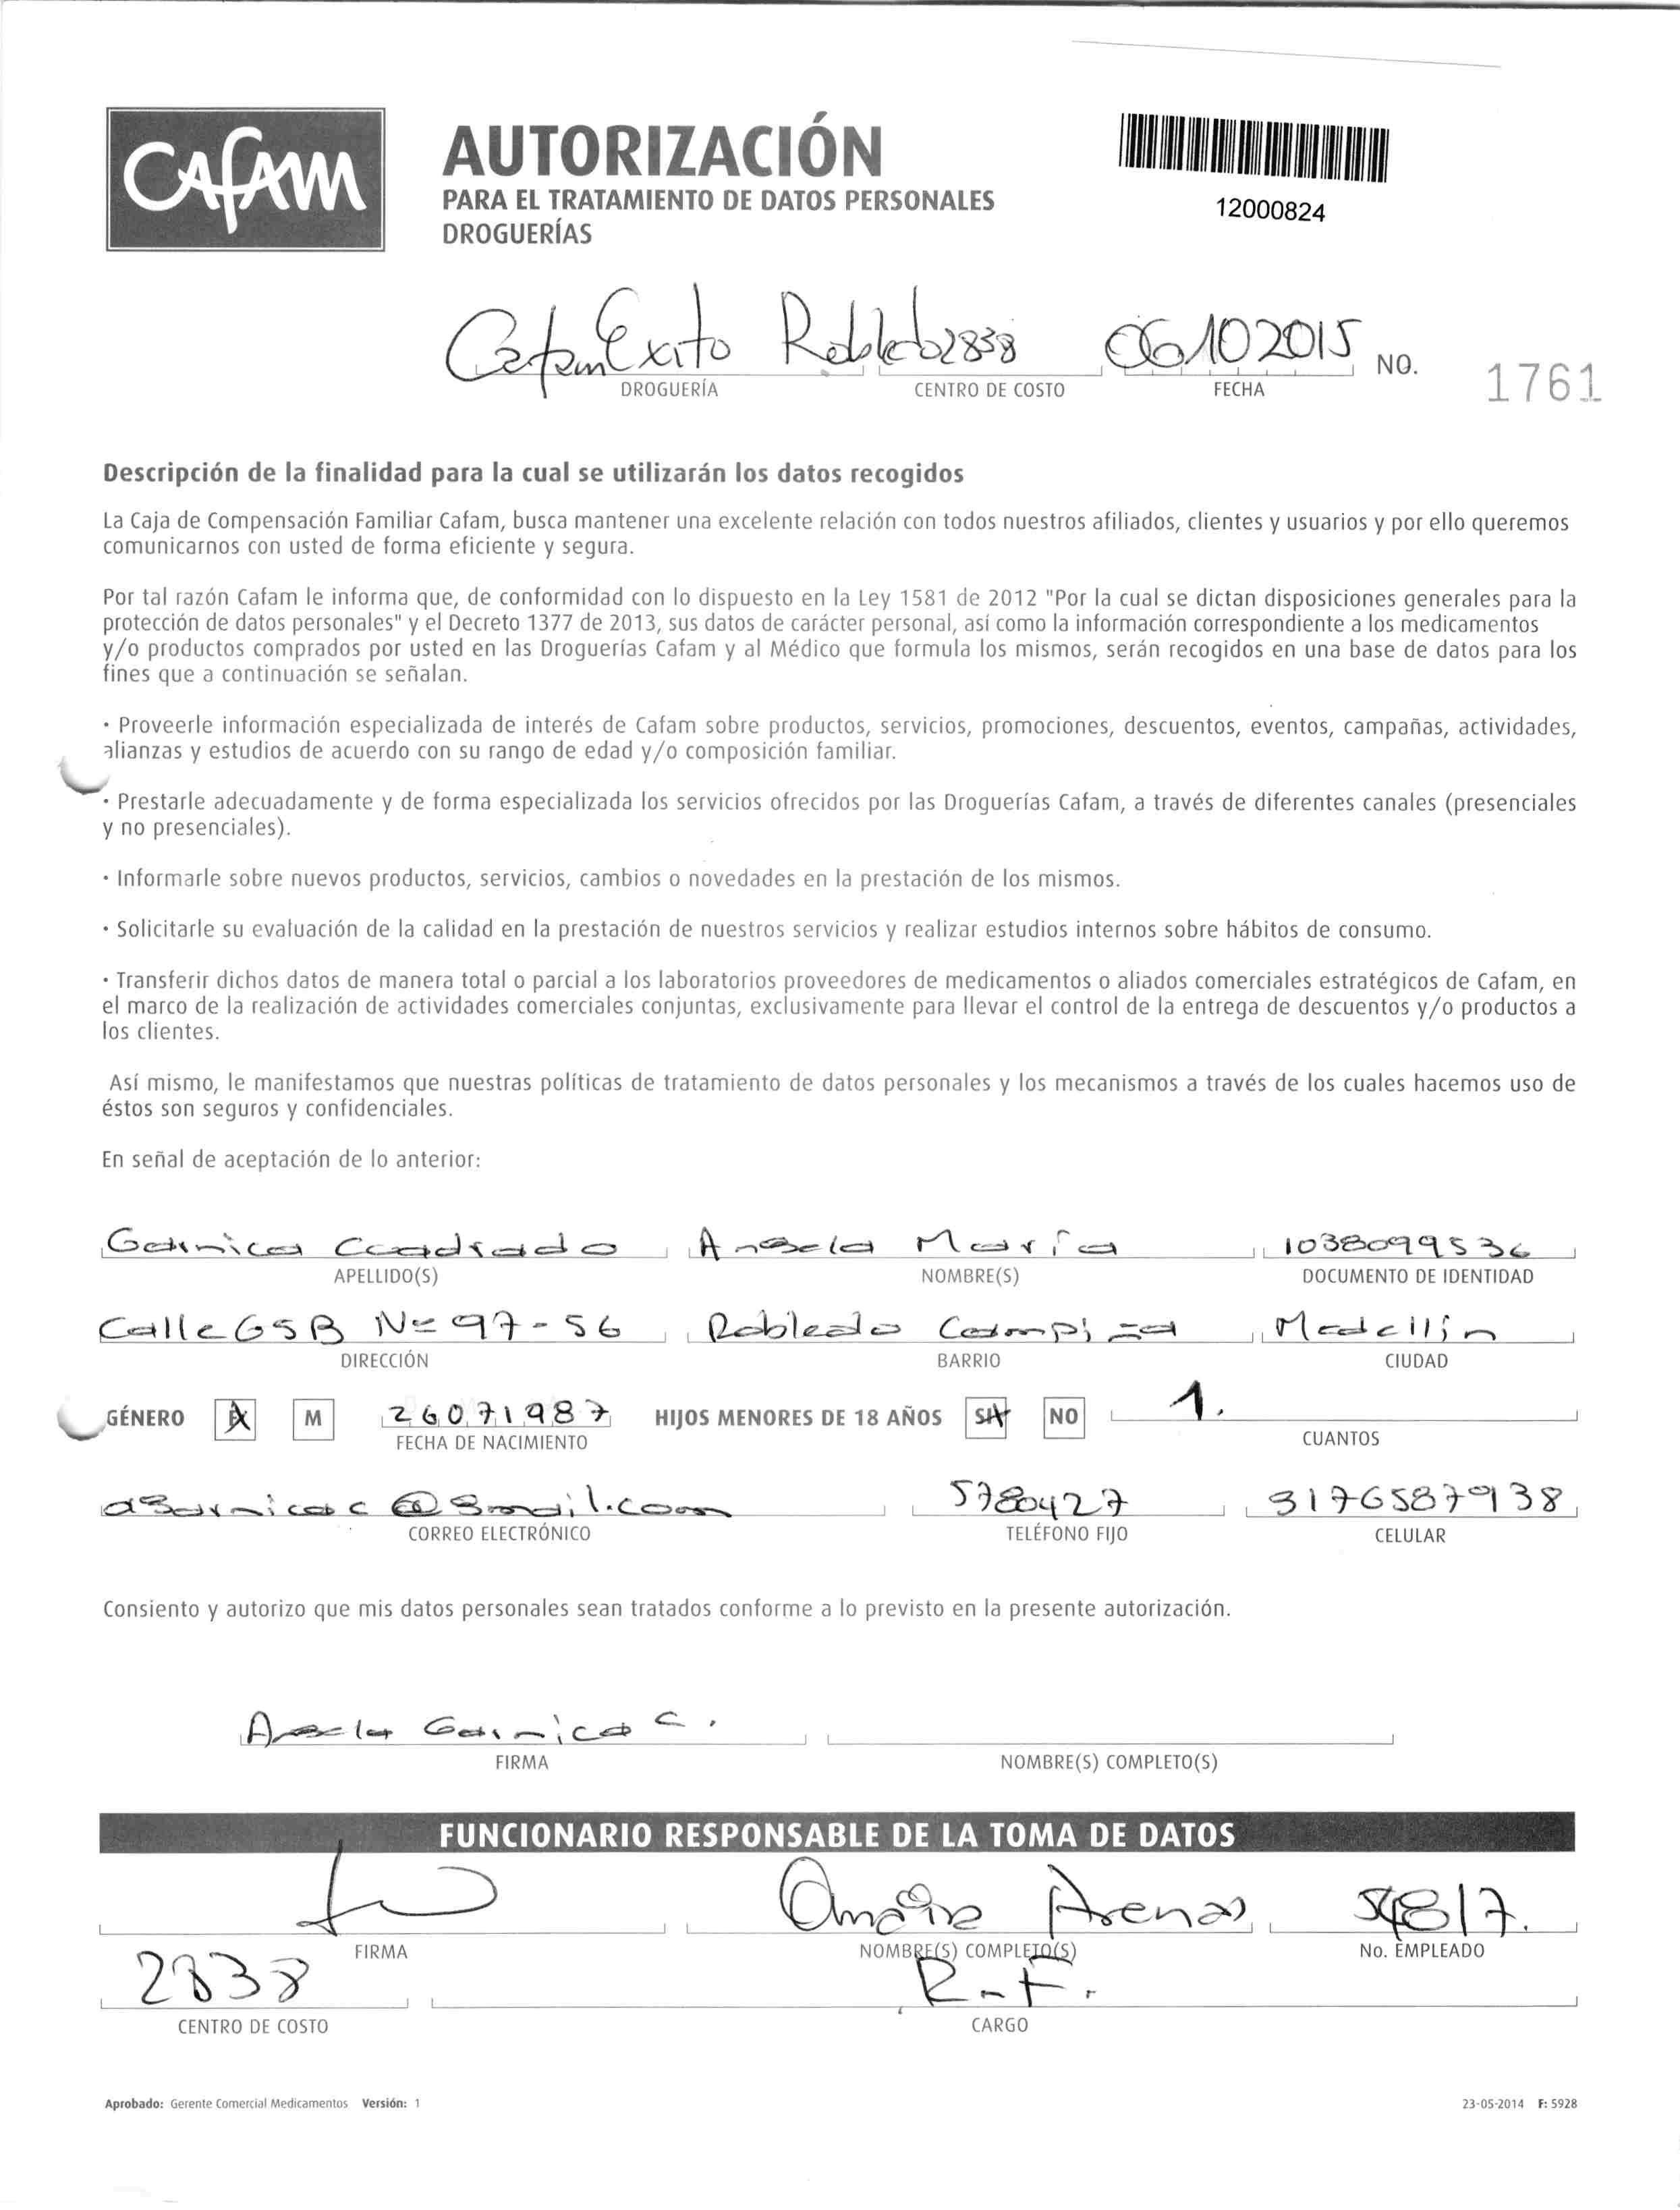 Cafam
AUTORIZACIÓN
PARA EL TRATAMIENTO DE DATOS PERSONALES
DROGUERÍAS
12000824
Cafam Exito Robledo 2838 06102015 NO. 1761
DROGUERÍA CENTRO DE COSTO FECHA
Descripción de la finalidad para la cual se utilizarán los datos recogidos
La Caja de Compensación Familiar Cafam, busca mantener una excelente relación con todos nuestros afiliados, clientes y usuarios y por ello queremos
comunicarnos con usted de forma eficiente y segura.
Por tal razón Cafam le informa que, de conformidad con lo dispuesto en la Ley 1581 de 2012 "Por la cual se dictan disposiciones generales para la
protección de datos personales" y el Decreto 1377 de 2013, sus datos de carácter personal, así como la información correspondiente a los medicamentos
y/o productos comprados por usted en las Droguerías Cafam y al Médico que formula los mismos, serán recogidos en una base de datos para los
fines que a continuación se señalan.
· Proveerle información especializada de interés de Cafam sobre productos, servicios, promociones, descuentos, eventos, campañas, actividades,
alianzas y estudios de acuerdo con su rango de edad y/o composición familiar.
· Prestarle adecuadamente y de forma especializada los servicios ofrecidos por las Droguerías Cafam, a través de diferentes canales (presenciales
y no presenciales).
· Informarle sobre nuevos productos, servicios, cambios o novedades en la prestación de los mismos.
· Solicitarle su evaluación de la calidad en la prestación de nuestros servicios y realizar estudios internos sobre hábitos de consumo.
· Transferir dichos datos de manera total o parcial a los laboratorios proveedores de medicamentos o aliados comerciales estratégicos de Cafam, en
el marco de la realización de actividades comerciales conjuntas, exclusivamente para llevar el control de la entrega de descuentos y/o productos a
los clientes.
Así mismo, le manifestamos que nuestras políticas de tratamiento de datos personales y los mecanismos a través de los cuales hacemos uso de
éstos son seguros y confidenciales.
En señal de aceptación de lo anterior:
Garnica Cuadrado Angela María 1038099536
APELLIDO(S) NOMBRE(S) DOCUMENTO DE IDENTIDAD
Calle 65B Nº 97-56 Robledo Campiña Medellín
DIRECCIÓN BARRIO CIUDAD
GÉNERO F X M 26071987 HIJOS MENORES DE 18 AÑOS SI X NO 1.
FECHA DE NACIMIENTO CUANTOS
agarnicac@gmail.com 5780427 3176587938
CORREO ELECTRÓNICO TELÉFONO FIJO CELULAR
Consiento y autorizo que mis datos personales sean tratados conforme a lo previsto en la presente autorización.
Angela Garnica C.
FIRMA NOMBRE(S) COMPLETO(S)
FUNCIONARIO RESPONSABLE DE LA TOMA DE DATOS
Arenas 54817.
FIRMA NOMBRE(S) COMPLETO(S) No. EMPLEADO
2838 R-F.
CENTRO DE COSTO CARGO
Aprobado: Gerente Comercial Medicamentos Versión: 1 23-05-2014 F: 5928